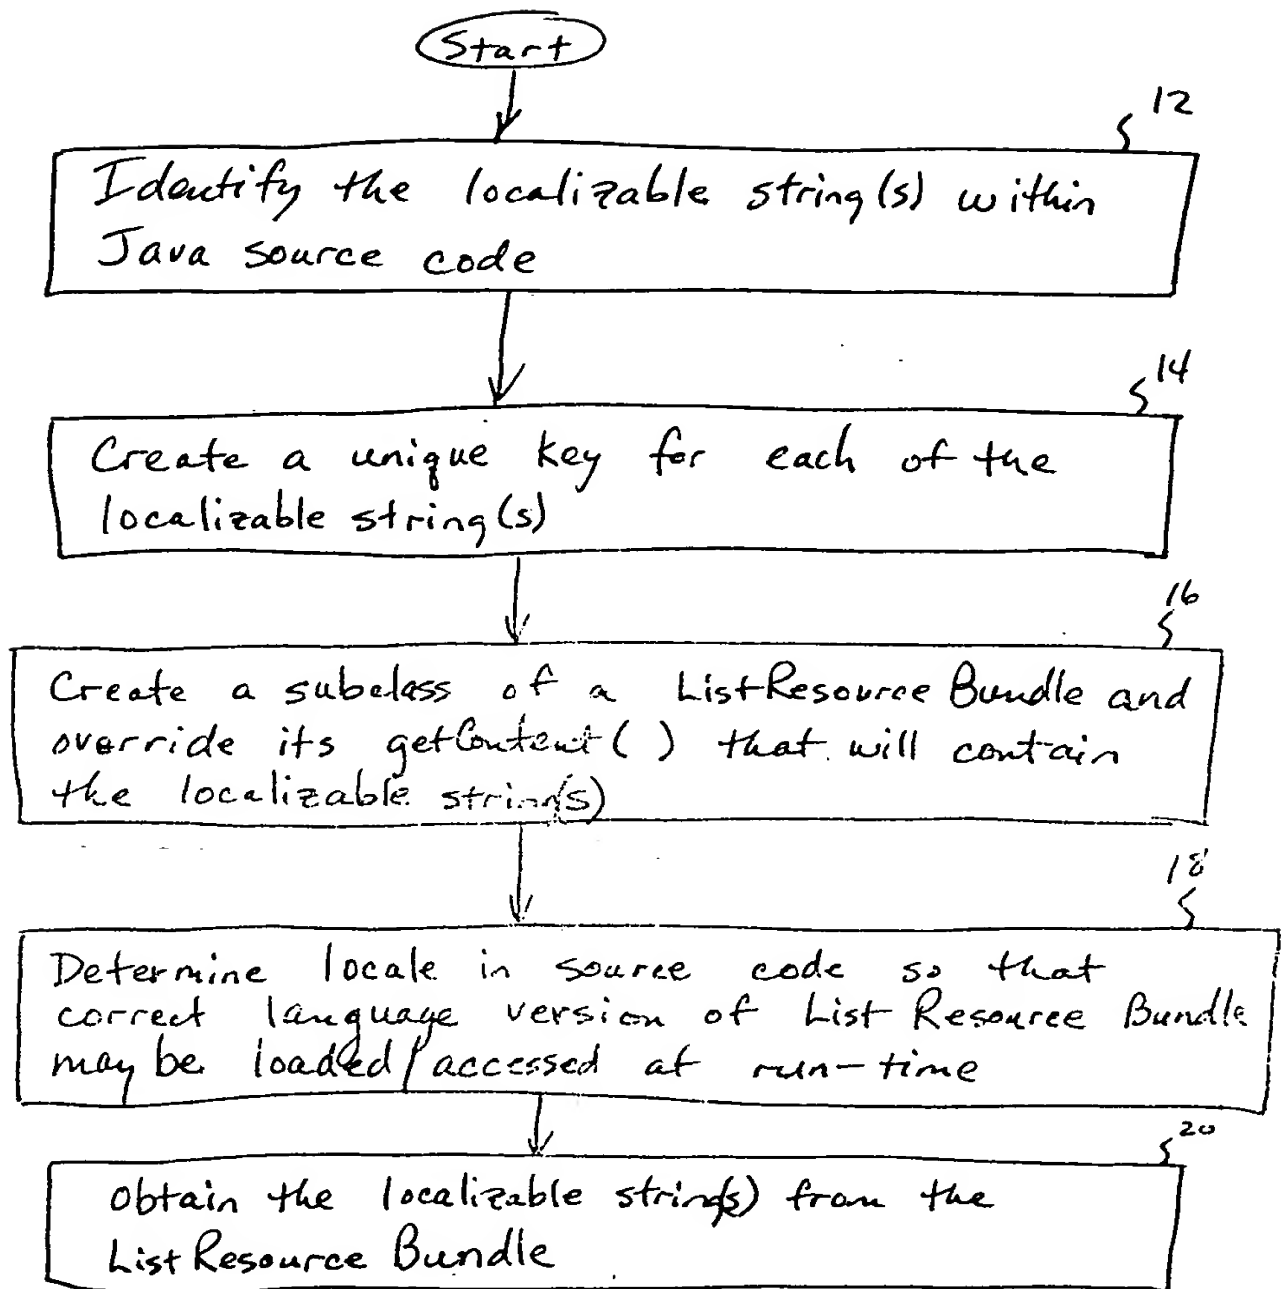 Start
12
Identify the localizable string(s) within
Java source code
14
Create a unique key for each of the
localizable string(s)
16
Create a subclass of a ListResource Bundle and
override its getContent( ) that will contain
the localizable string(s)
18
Determine locale in source code so that
correct language version of List Resource Bundle
may be loaded/accessed at run-time
20
Obtain the localizable string(s) from the
List Resource Bundle